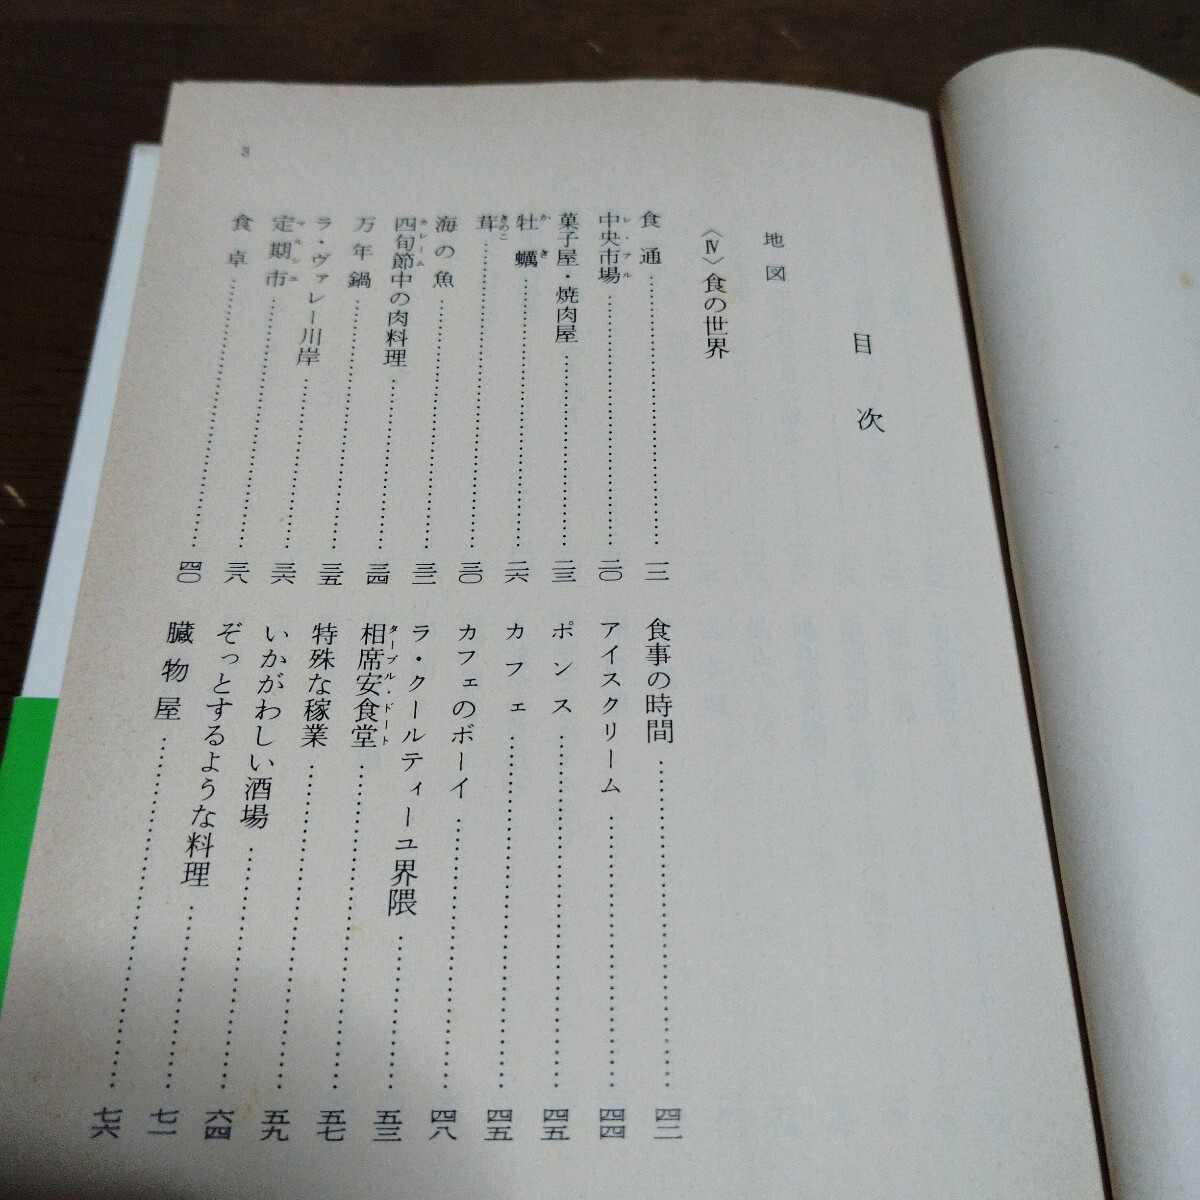 目次
地図
〈Ⅳ〉食の世界
食通……一二
中央市場……二〇
レ・アル
菓子屋・焼肉屋……二三
牡蠣……二六
かき
茸……三〇
きのこ
海の魚……三二
四旬節中の肉料理……三四
カレーム
万年鍋……三五
ラ・ヴァレー川岸……三六
定期市……三八
マルシェ
食卓……四〇
食事の時間……四二
アイスクリーム……四四
ポンス……四五
カフェ……四五
カフェのボーイ……四八
ラ・クールティーユ界隈……五三
相席安食堂……五七
ターブル・ドート
特殊な稼業……五九
いかがわしい酒場……六四
ぞっとするような料理……七一
臓物屋……七六
3